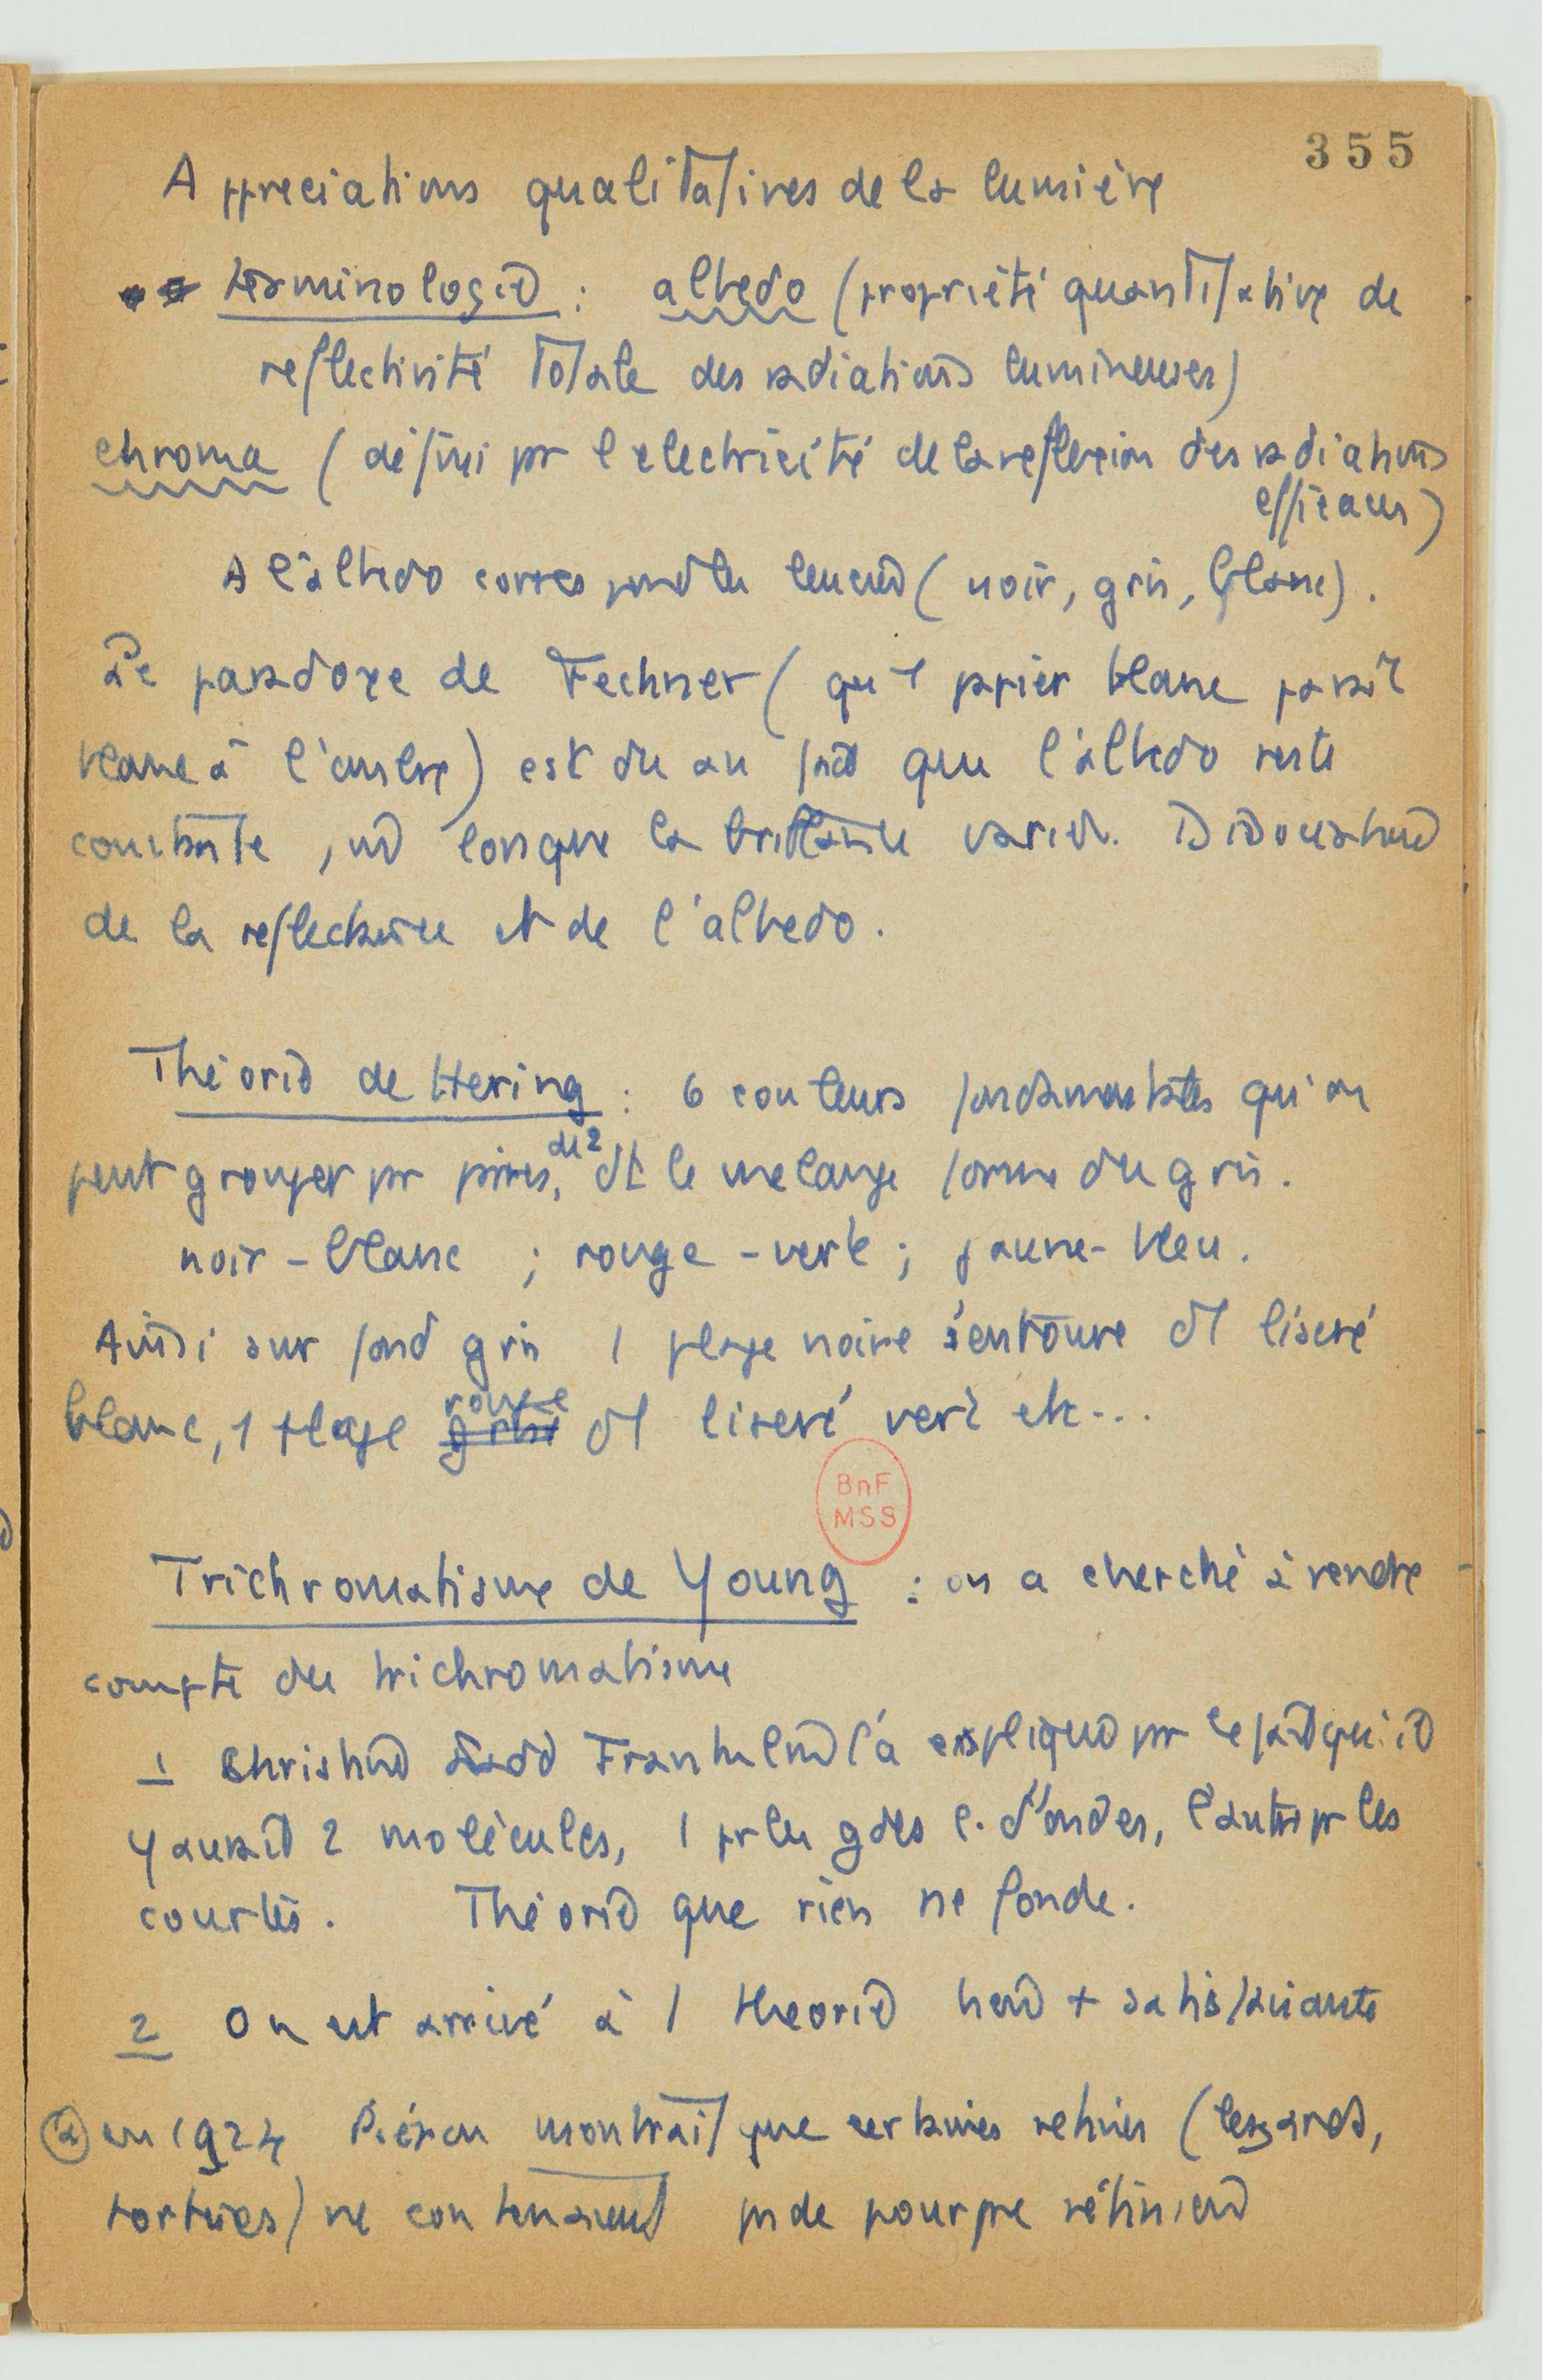 355
Appreciations qualitatives de la lumière
terminologie : albedo (propriété quantitative de
reflectivité totale des radiations lumineuses)
chroma (défini pr l'electricité de la reflexion des radiations
efficaces)
A l'albedo correspond la leucie (noir, gris, blanc).
Le paradoxe de Fechner (qu'1 papier blanc parait
blanc à l'ombre) est du au fait que l'albedo reste
constante, lorsque la brillance varie. Dissociation
de la reflectance et de l'albedo.
Théorie de Hering : 6 couleurs fondamentales qu'on
peut grouper pr paires, de 2 dt le melange forme du gris.
noir - blanc ; rouge - verte ; jaune - bleu.
Ainsi sur fond gris 1 plage noire s'entoure d'1 liseré
blanc, 1 plage rouge d'1 liseré vert etc...
BnF
MSS
Trichromatisme de Young : on a cherché à rendre
compte du trichromatisme
1 Christine Ladd Franklin l'a expliqué pr le fait qu'il
y aurait 2 molécules, 1 pr les gdes l. d'ondes, l'autre pr les
courtes. Théorie que rien ne fonde.
2 On est arrivé à 1 theorie bien + satisfaisante
a en 1924 Piéron montrait que certaines retines (lezards,
tortues) ne contenaient ps de pourpre rétinien